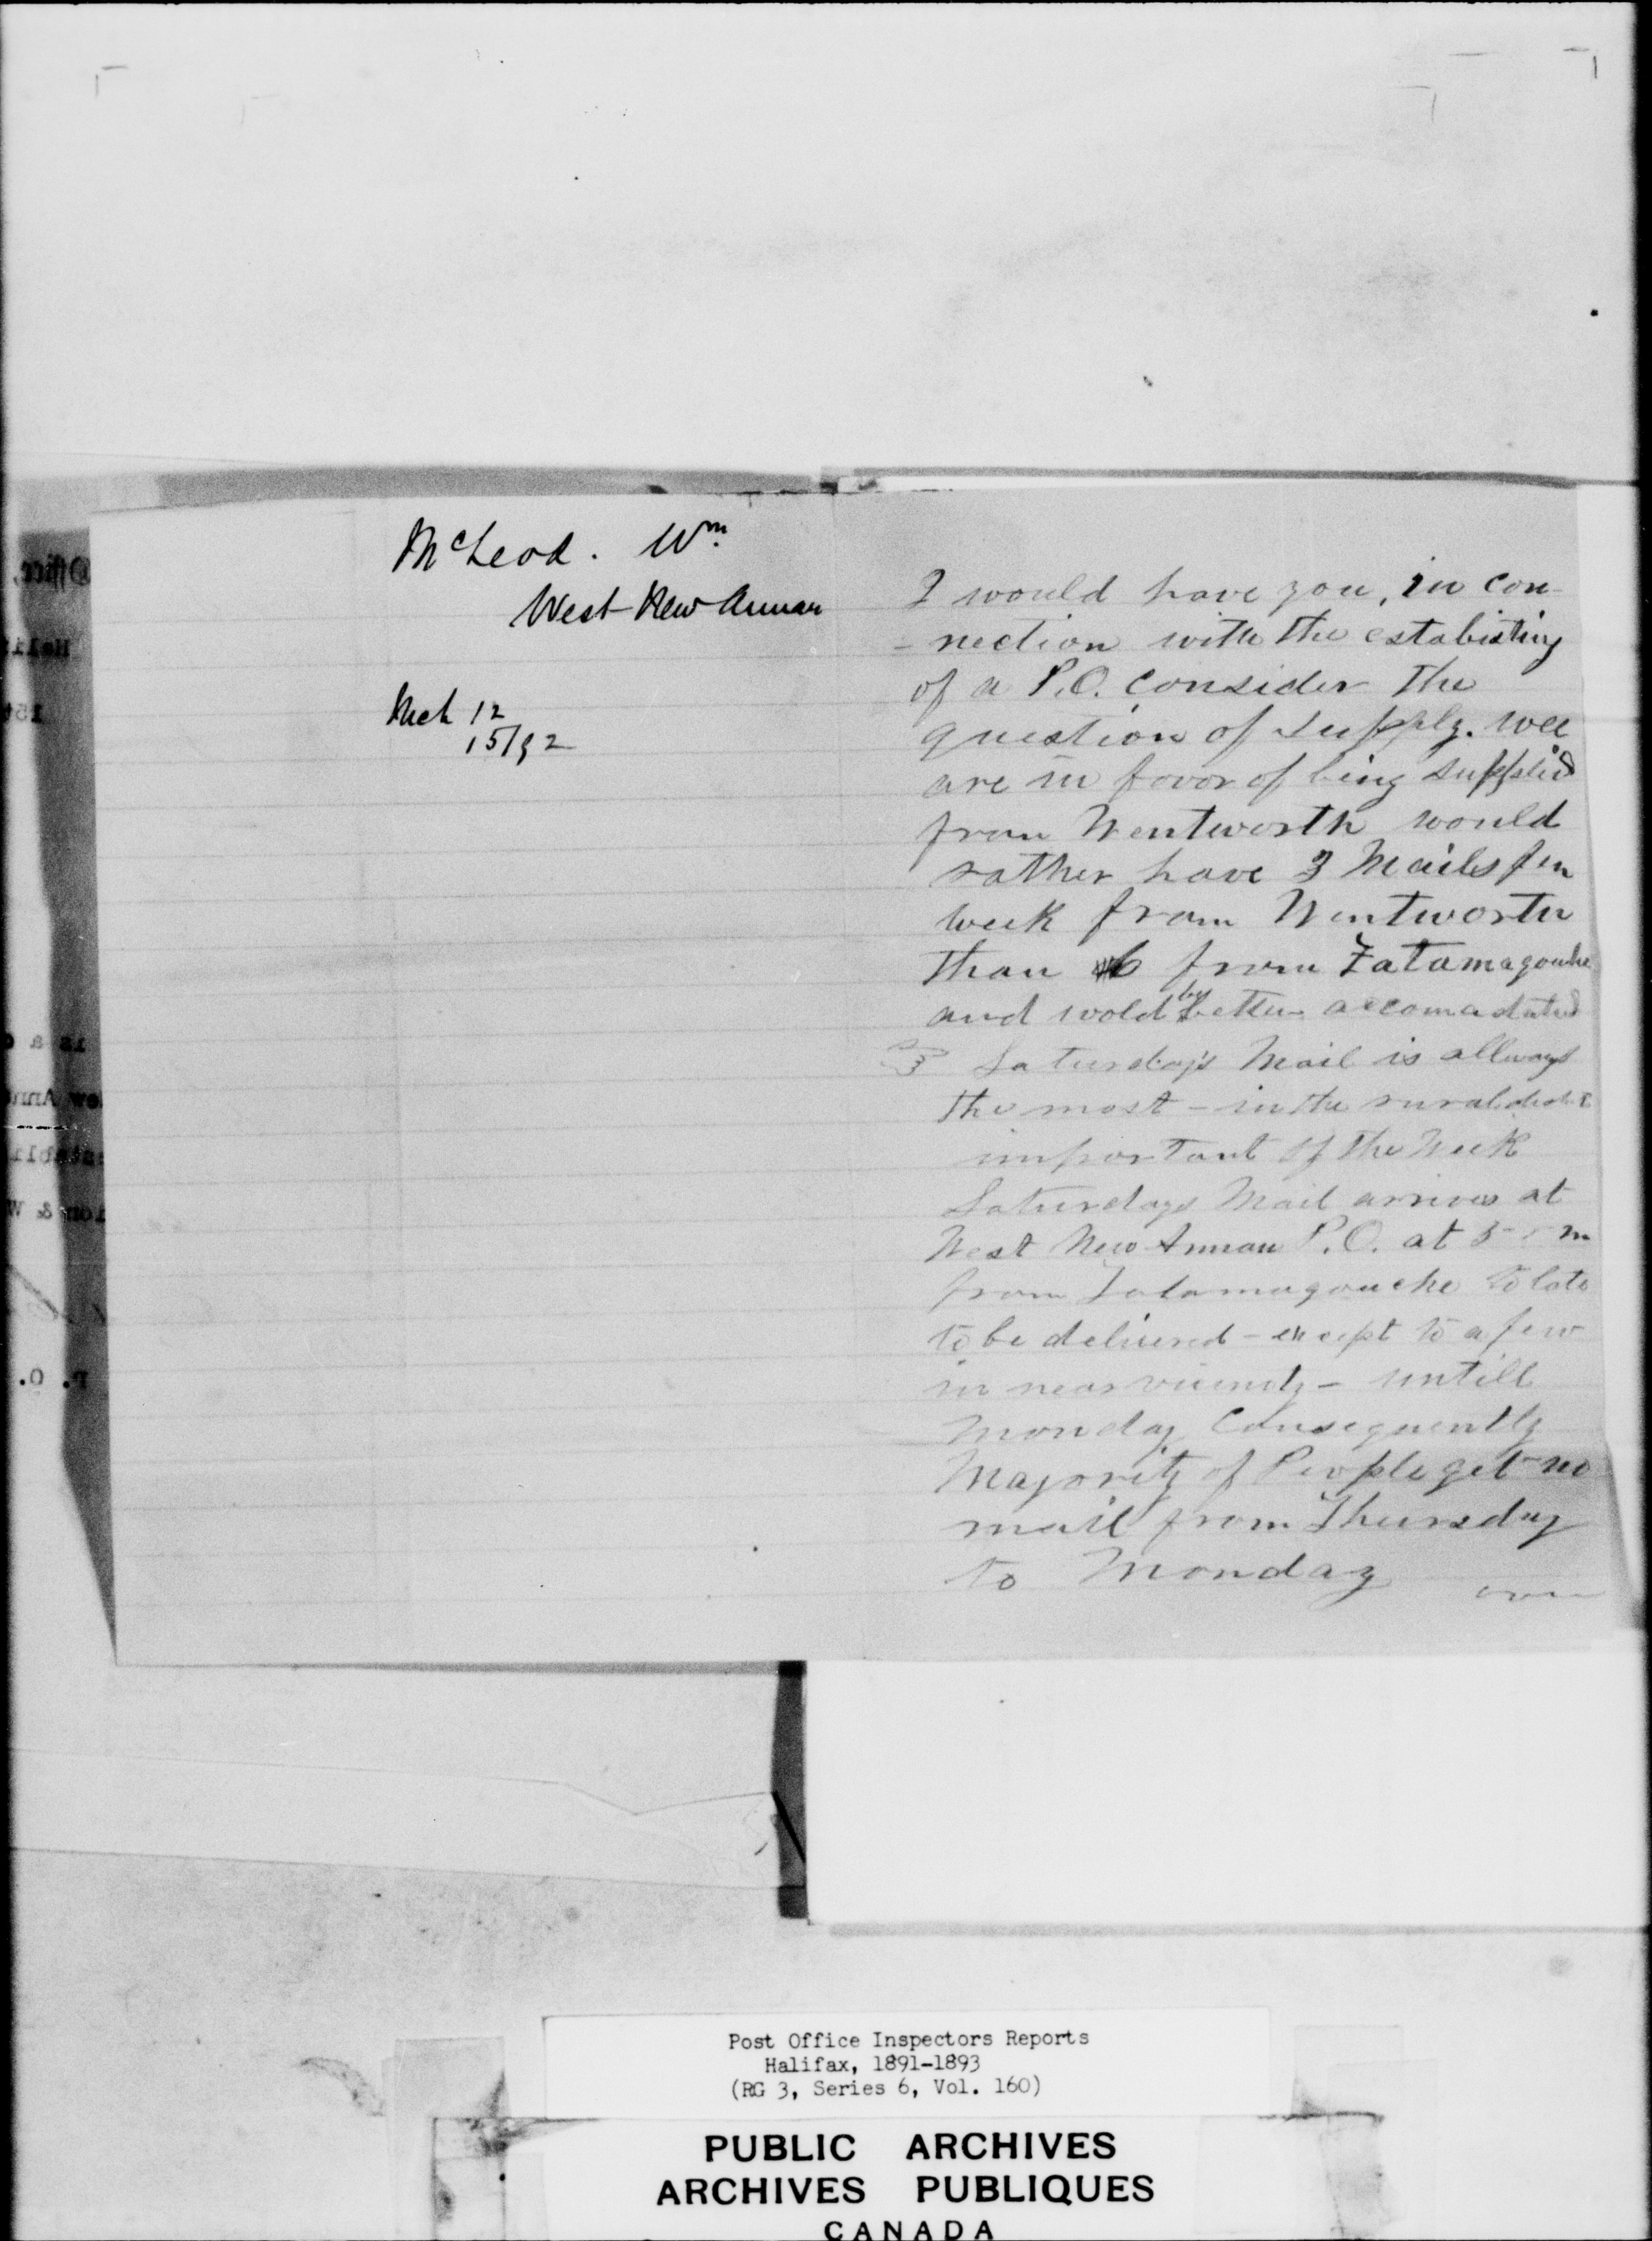 McLeod. Wm.
West New Annan
Mch 12
15/92
I would have you, in con-
- nection with the establisting
of a P.O. consider The
question of supply. wee
are in favor of being supplied
from Wentworth would
rather have 3 Mails per
week from Wentworth
than 6 from Tatamagouche
and wold be better accomadated
Saturday's Mail is allways
the most - in the rural
important of the Week
Saturdays Mail arrives at
West New Annan P.O. at 5 m
from Tatamagouche to late
to be delivered - except to a few
in near vicinity - untill
Monday Consequently
Majority of People get no
mail from Thursday
to Monday
over
Post Office Inspectors Reports
Halifax, 1891-1893
(RG 3, Series 6, Vol. 160)
PUBLIC ARCHIVES
ARCHIVES PUBLIQUES
CANADA